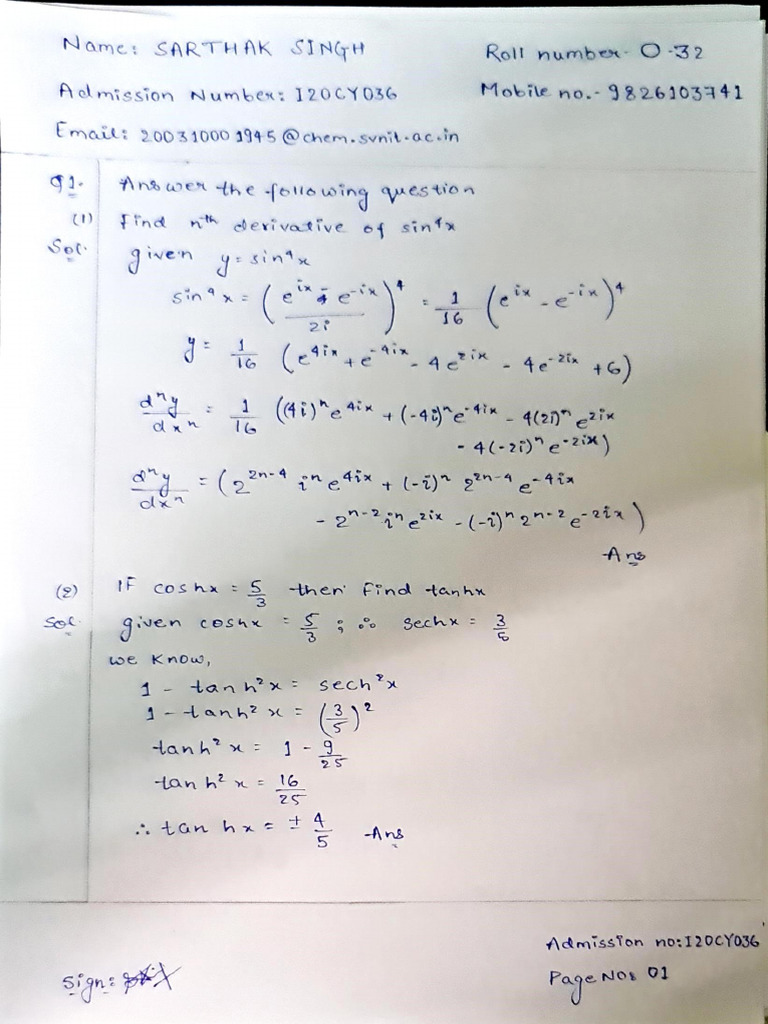 Name: SARTHAK SINGH Roll number- O-32
Admission Number: I20CY036 Mobile no.- 9826103741
Email: 200310001945@chem.svnit.ac.in
Q1. Answer the following question
(1) Find nth derivative of sin⁴x
Sol. given y = sin⁴x
sin⁴x = ((e^{ix} - e^{-ix})/2i)⁴ = 1/16 (e^{ix} - e^{-ix})⁴
y = 1/16 (e^{4ix} + e^{-4ix} - 4e^{2ix} - 4e^{-2ix} + 6)
dⁿy/dxⁿ = 1/16 ((4i)ⁿ e^{4ix} + (-4i)ⁿ e^{-4ix} - 4(2i)ⁿ e^{2ix}
- 4(-2i)ⁿ e^{-2ix})
dⁿy/dxⁿ = (2^{2n-4} iⁿ e^{4ix} + (-i)ⁿ 2^{2n-4} e^{-4ix}
- 2^{n-2} iⁿ e^{2ix} - (-i)ⁿ 2^{n-2} e^{-2ix})
-Ans
(2) IF coshx = 5/3 then find tanhx
Sol. given coshx = 5/3 ; ∴ sechx = 3/5
we know,
1 - tanh²x = sech²x
1 - tanh²x = (3/5)²
tanh²x = 1 - 9/25
tanh²x = 16/25
∴ tanhx = ± 4/5 -Ans
Admission no: I20CY036
Sign: Page No: 01